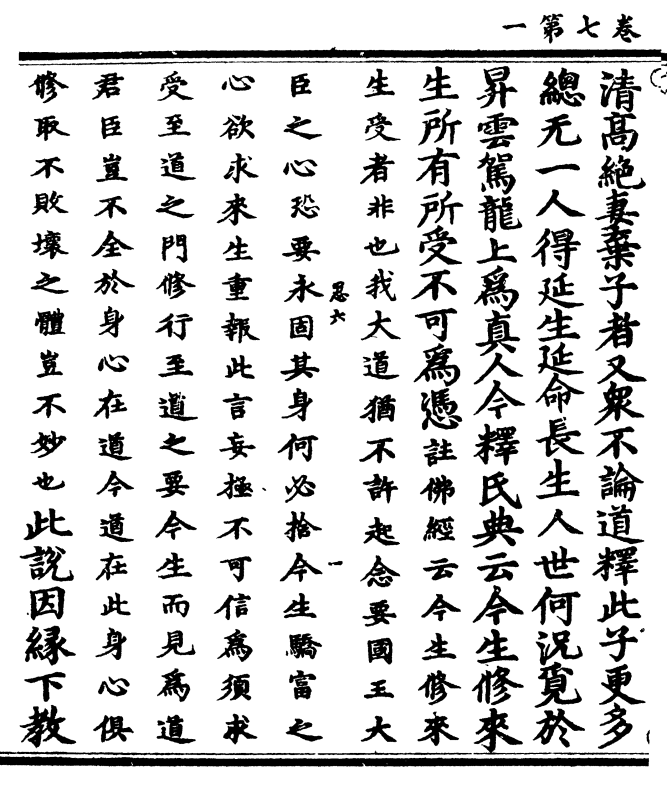 卷七第一
清高絶妻棄子者又衆不論道釋此子更多
總无一人得延生延命長生人世何況覓於
昇雲駕龍上爲真人今釋氏典云今生修來
生所有所受不可爲憑註佛經云今生修來
生受者非也我大道猶不許起念要國王大
恩六
臣之心恐要永固其身何必捨今生驕富之
一
心欲求來生重報此言妄極不可信爲須求
受至道之門修行至道之要今生而見爲道
君臣豈不全於身心在道今道在此身心俱
修取不敗壞之體豈不妙也此說因緣下教